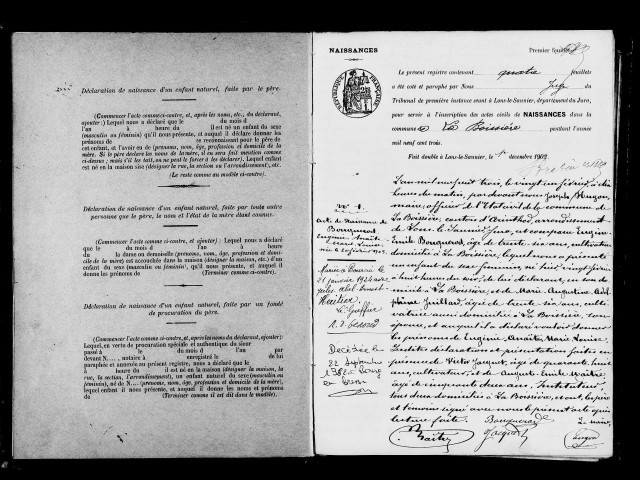 Déclaration de naissance d'un enfant naturel, faite par le père.
(Commencer l'acte comme ci-contre, et, après les noms, etc., du déclarant,
ajouter :) Lequel nous a déclaré que le du mois d
l'an à heure du il est né un enfant du sexe
(masculin ou féminin) qu'il nous présente, et auquel il déclare donner les
prénoms de se reconnaissant pour le père de
cet enfant, et l'avoir eu de (prénoms, nom, âge, profession et domicile de la mère.
Si le père déclare les noms de la mère, il en sera fait mention comme
ci-dessus ; mais s'il les tait, on ne peut le forcer à les déclarer). Lequel enfant
est né en la maison sise (désigner la rue, la section ou l'arrondissement), etc.
(Le reste comme au modèle ci-contre.)
Déclaration de naissance d'un enfant naturel, faite par toute autre
personne que le père, le nom et l'état de la mère étant connus.
(Commencer l'acte comme ci-contre, et ajouter) : Lequel nous a déclaré
que le du mois d l'an à heure
du la dame ou demoiselle (prénoms, nom, âge, profession et domi-
cile de la mère) est accouchée dans la maison (désigner la maison, etc.) d'un
enfant du sexe (masculin ou féminin), qu'il nous présente, et auquel il
donne les prénoms de (Terminer comme ci-contre.)
Déclaration de naissance d'un enfant naturel, faite par un fondé
de procuration du père.
(Commencer l'acte comme ci-contre, et après les noms du déclarant, ajouter) :
Lequel, en vertu de procuration spéciale et authentique du sieur
passé à du mois d l'an par
devant N...., notaire à enregistré le de lui
paraphée et annexée au présent registre, nous a déclaré que le
à heure du il est né en la maison (désigner la maison, la
rue, la section, l'arrondissement) un enfant naturel du sexe (masculin ou
féminin), né de N.... (prénoms, nom, âge, profession et domicile de la mère),
qu'il nous a présenté, et auquel il donne les prénoms
de (Terminer comme il est dit dans le modèle).
NAISSANCES
Premier feuillet
Le présent registre contenant quatre feuillets
a été coté et paraphé par Nous Juge du
Tribunal de première instance séant à Lons-le-Saunier, département du Jura,
pour servir à l'inscription des actes civils de NAISSANCES dans la
commune de La Boissière pendant l'année
mil neuf cent trois.
Fait double à Lons-le-Saunier, le décembre 1902.
RÉPUBLIQUE FRANÇAISE
N° 1.
Acte de Naissance de
Bouquerod
Eugène Anaïte
Marie Louise
L'an mil neuf cent trois, le vingt un février à dix
heures du matin, par devant nous Joseph
maire, officier de l'Etat civil de la commune de
La Boissière, canton d'Arinthod, arrondissement
de Lons le Saunier, Jura, est comparu Eugène
Emile Bouquerod, âgé de trente six ans, cultivateur
domicilié à La Boissière, lequel nous a présenté
un enfant du sexe féminin, né hier vingt février
à huit heures du soir, de lui déclarant, en son do-
micile à La Boissière, et de Marie Augustine Adel-
phine Juillard, âgée de trente six ans, culti-
vatrice aussi domiciliée à La Boissière, son
épouse, et auquel il a déclaré vouloir donner
les prénoms de Eugène Anaïte Marie Louise.
Lesdites déclaration et présentation faites en
présence de Victor Jacquet, âgé de quarante huit
ans, cultivateur, et de Auguste Emile Maitre,
âgé de cinquante deux ans, Instituteur,
tous deux domiciliés à La Boissière, et ont, le père
et témoins signé avec nous le présent acte après
lecture faite.
Bouquerod
Le maire
Maitre
Jacquet
Mariée à
21 janvier 1924 avec
Jules Abel Ernest
Le Greffier
Décédée le
22
1982 à Lons